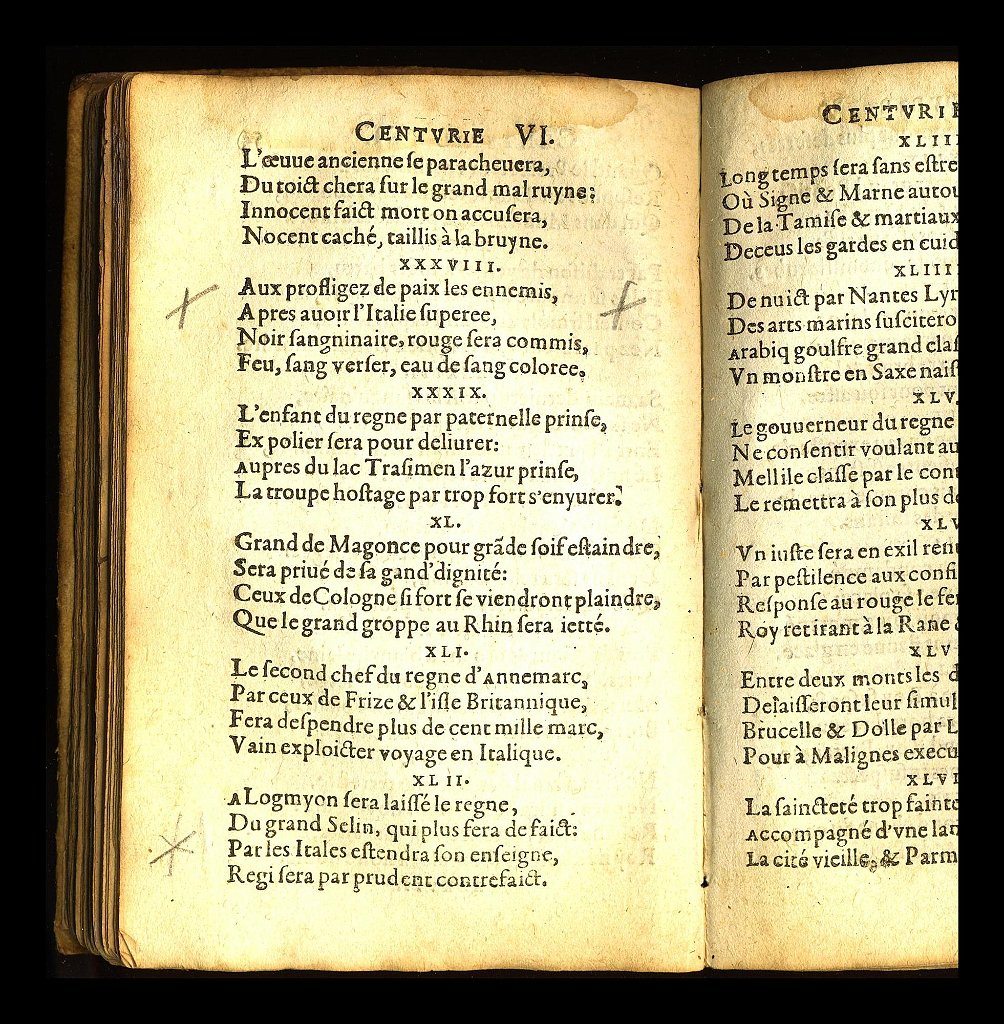 CENTVRIE VI.
L'œuue ancienne ſe paracheuera,
Du toict chera ſur le grand mal ruyne:
Innocent faict mort on accuſera,
Nocent caché, taillis à la bruyne.
XXXVIII.
Aux profligez de paix les ennemis,
Apres auoir l'Italie ſuperee,
Noir ſangninaire, rouge ſera commis,
Feu, ſang verſer, eau de ſang coloree,
XXXIX.
L'enfant du regne par paternelle prinſe,
Expolier ſera pour deliurer:
Aupres du lac Traſimen l'azur prinſe,
La troupe hoſtage par trop fort s'enyurer.
XL.
Grand de Magonce pour grãde ſoif eſtaindre,
Sera priué de ſa gand'dignité:
Ceux de Cologne ſi fort ſe viendront plaindre,
Que le grand groppe au Rhin ſera ietté.
XLI.
Le ſecond chef du regne d'Annemarc,
Par ceux de Frize & l'iſle Britannique,
Fera deſpendre plus de cent mille marc,
Vain exploicter voyage en Italique.
XLII.
A Logmyon ſera laiſſé le regne,
Du grand Selin, qui plus fera de faict:
Par les Itales eſtendra ſon enſeigne,
Regi ſera par prudent contrefaict.
CENTVRIE
XLIII
Long temps ſera ſans eſtre
Où Signe & Marne autou
De la Tamiſe & martiaux
Deceus les gardes en cuid
XLIIII
De nuict par Nantes Lyr
Des arts marins ſuſcitero
Arabiq goulfre grand claſ
Vn monſtre en Saxe naiſ
XLV.
Le gouuerneur du regne
Ne conſentir voulant au
Mellile claſſe par le con
Le remettra à ſon plus de
XLV
Vn iuſte ſera en exil ren
Par peſtilence aux confi
Reſponſe au rouge le fe
Roy retirant à la Rane &
XLV
Entre deux monts les d
Delaiſſeront leur ſimul
Brucelle & Dolle par L
Pour à Malignes execu
XLVI
La ſaincteté trop fainte
Accompagné d'vne lan
La cité vieille, & Parm